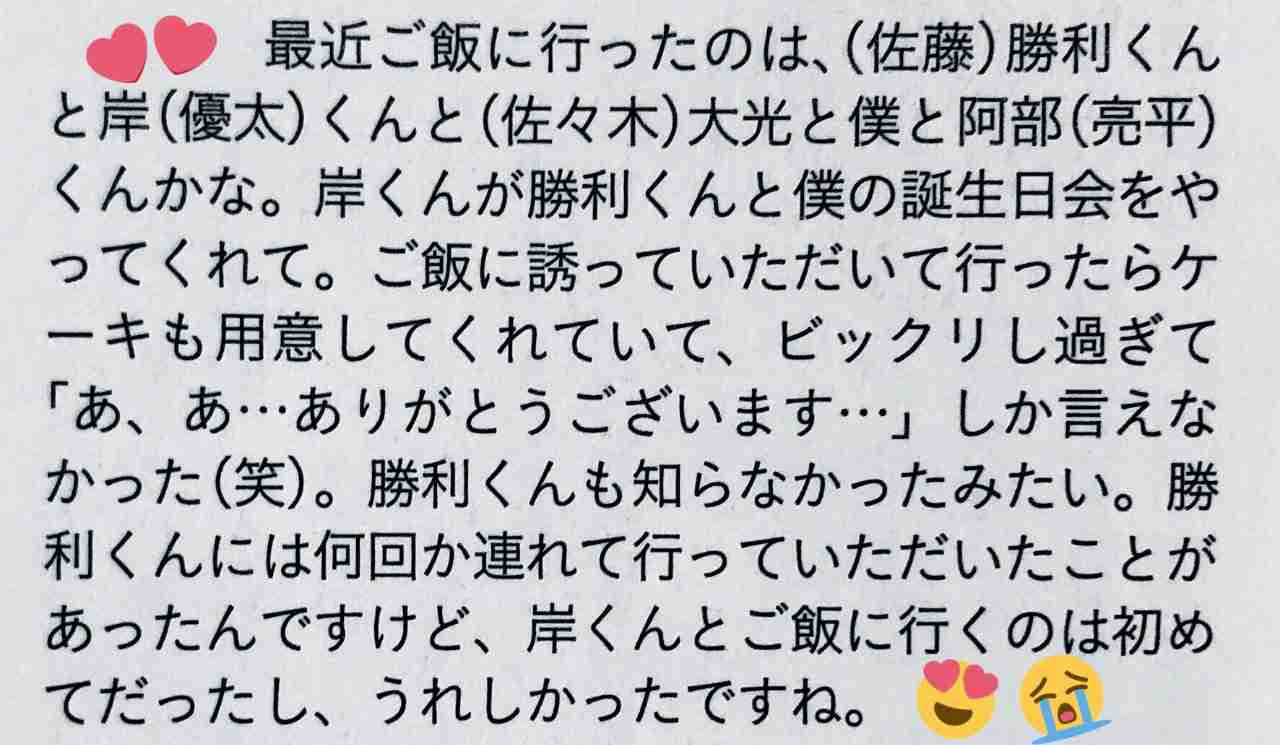 最近ご飯に行ったのは、(佐藤)勝利くん
と岸(優太)くんと(佐々木)大光と僕と阿部(亮平)
くんかな。岸くんが勝利くんと僕の誕生日会をや
ってくれて。ご飯に誘っていただいて行ったらケ
ーキも用意してくれていて、ビックリし過ぎて
「あ、あ…ありがとうございます…」しか言えな
かった(笑)。勝利くんも知らなかったみたい。勝
利くんには何回か連れて行っていただいたことが
あったんですけど、岸くんとご飯に行くのは初め
てだったし、うれしかったですね。